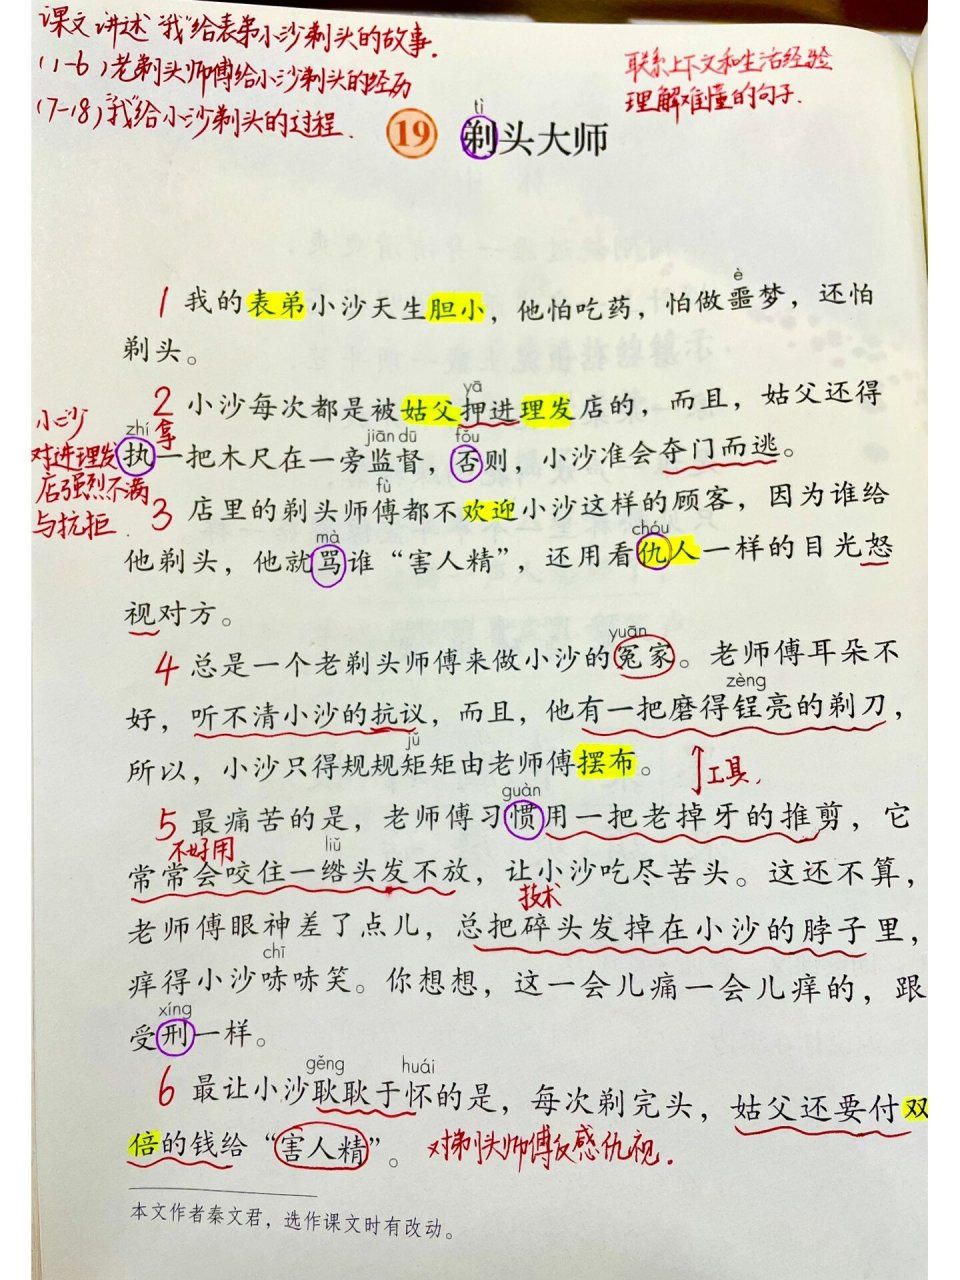 课文讲述“我”给表弟小沙剃头的故事.
(1-6)老剃头师傅给小沙剃头的经历
(7-18)“我”给小沙剃头的过程.
联系上下文和生活经验
理解难懂的句子.
tì
19 剃头大师
è
1 我的表弟小沙天生胆小，他怕吃药，怕做噩梦，还怕
剃头。
yā
2 小沙每次都是被姑父押进理发店的，而且，姑父还得
拿
zhí jiān dū fǒu
执一把木尺在一旁监督，否则，小沙准会夺门而逃。
小沙
对进理发
店强烈不满
与抗拒.
fù
3 店里的剃头师傅都不欢迎小沙这样的顾客，因为谁给
mà chóu
他剃头，他就骂谁“害人精”，还用看仇人一样的目光怒
视对方。
yuān
4 总是一个老剃头师傅来做小沙的冤家。老师傅耳朵不
zèng
好，听不清小沙的抗议，而且，他有一把磨得锃亮的剃刀，
jǔ
所以，小沙只得规规矩矩由老师傅摆布。
工具.
guàn
5 最痛苦的是，老师傅习惯用一把老掉牙的推剪，它
不好用
liǔ
常常会咬住一绺头发不放，让小沙吃尽苦头。这还不算，
技术
老师傅眼神差了点儿，总把碎头发掉在小沙的脖子里，
chī
痒得小沙哧哧笑。你想想，这一会儿痛一会儿痒的，跟
xíng
受刑一样。
gěng huái
6 最让小沙耿耿于怀的是，每次剃完头，姑父还要付双
倍的钱给“害人精”。
对剃头师傅反感仇视.
本文作者秦文君，选作课文时有改动。